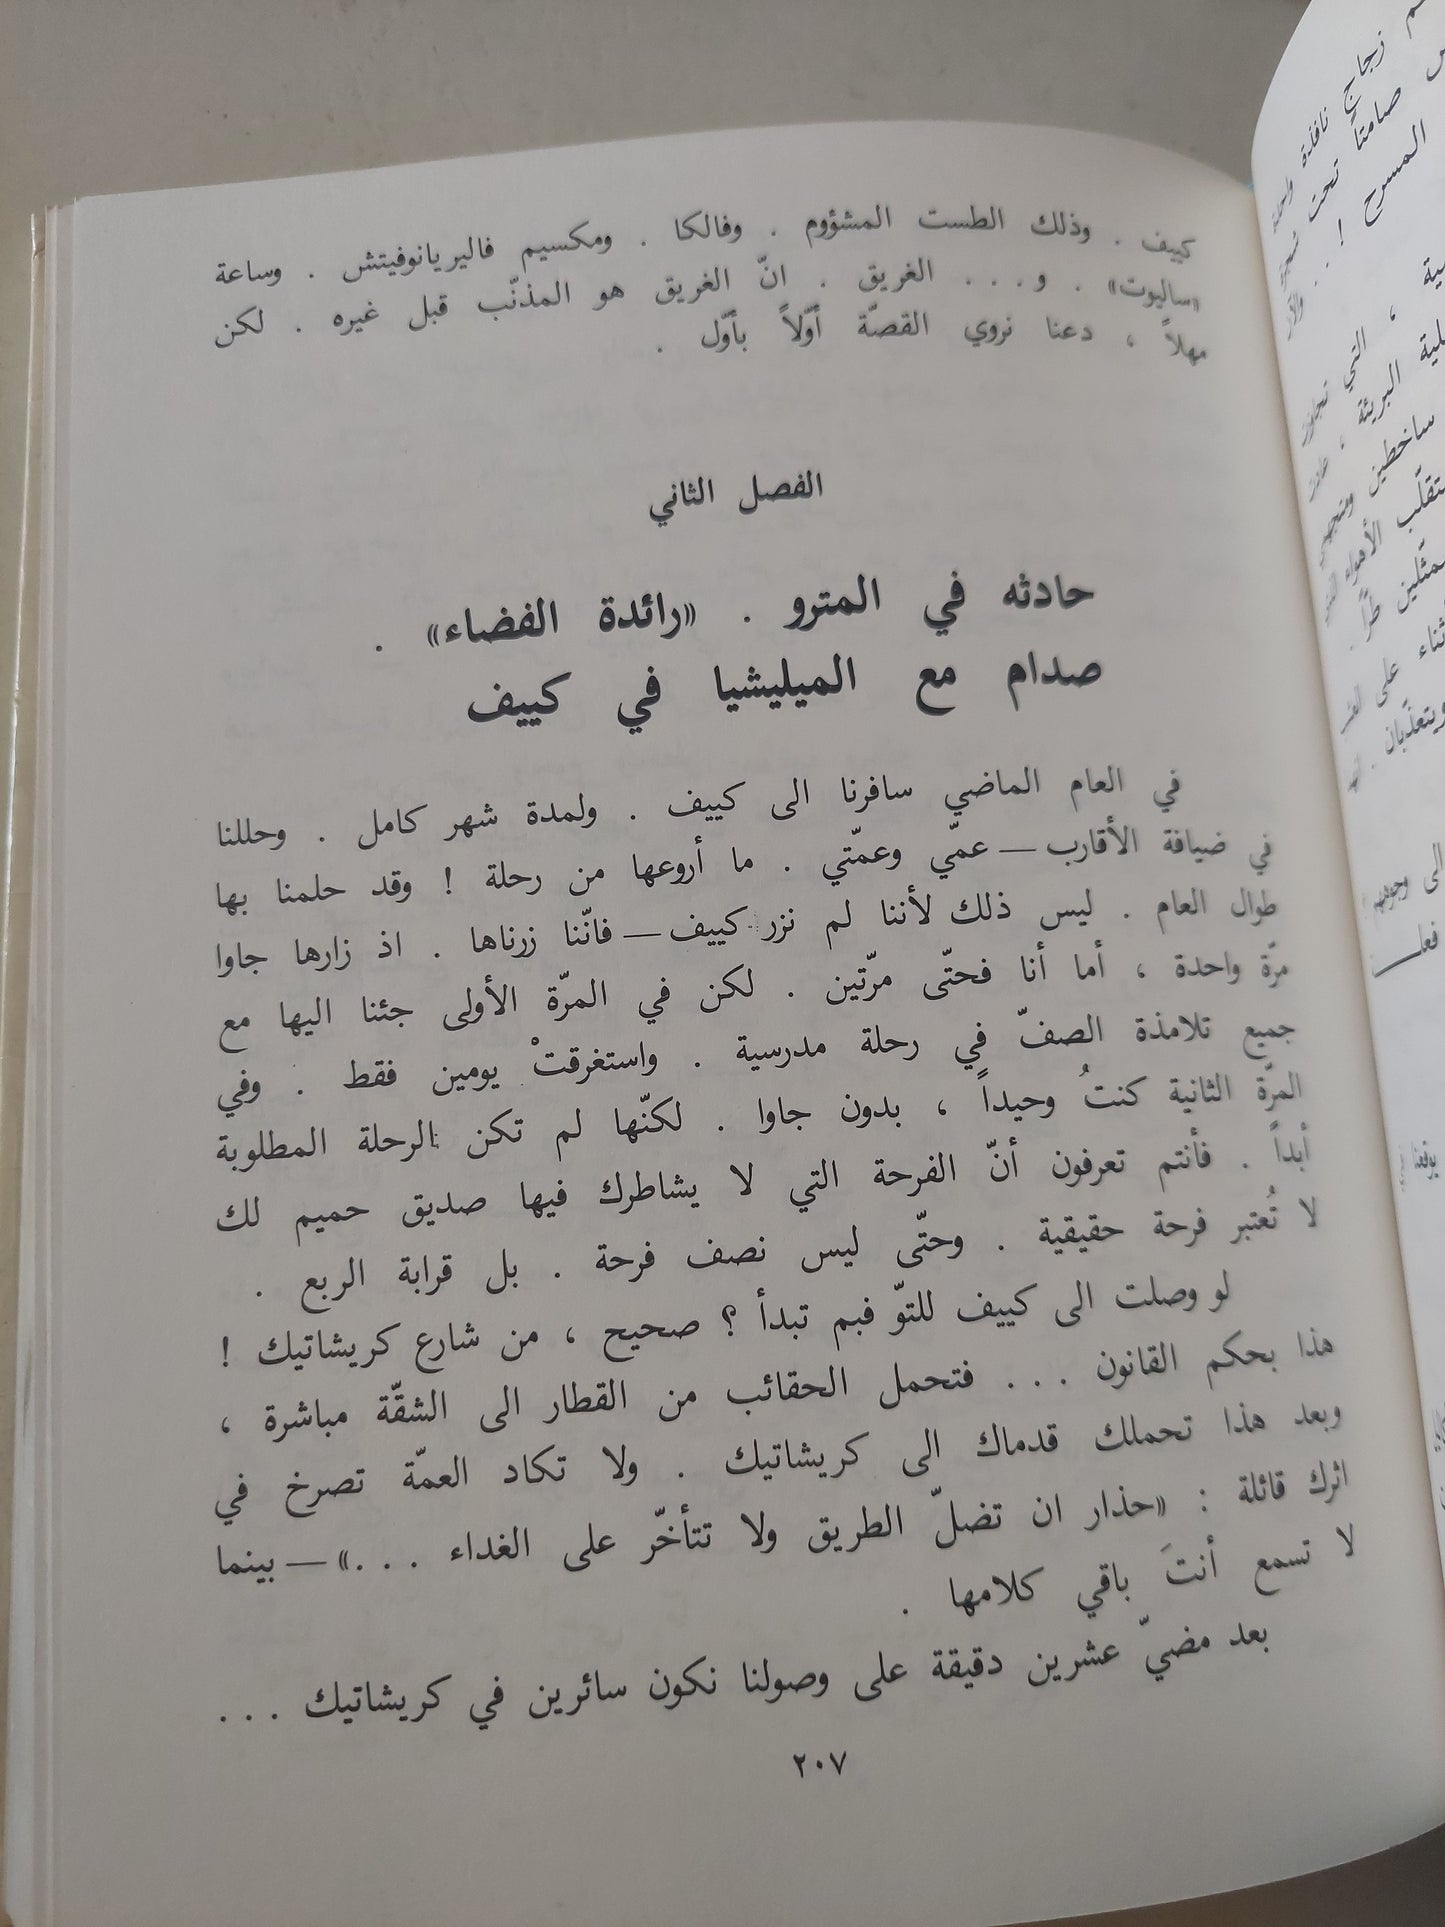 كييف . وذلك الطست المشؤوم . وفالكا . ومكسيم فاليريانوفيتش . وساعة
«ساليوت» . و... الغريق . انّ الغريق هو المذنّب قبل غيره . لكن
مهلاً ، دعنا نروي القصّة أوّلاً بأوّل .
الفصل الثاني
حادثه في المترو . «رائدة الفضاء» .
صدام مع الميليشيا في كييف
في العام الماضي سافرنا الى كييف . ولمدة شهر كامل . وحللنا
في ضيافة الأقارب — عمّي وعمّتي . ما أروعها من رحلة ! وقد حلمنا بها
طوال العام . ليس ذلك لأننا لم نزر كييف — فانّنا زرناها . اذ زارها جاوا
مرّة واحدة ، أما أنا فحتّى مرّتين . لكن في المرّة الأولى جئنا اليها مع
جميع تلامذة الصفّ في رحلة مدرسية . واستغرقتْ يومين فقط . وفي
المرّة الثانية كنتُ وحيداً ، بدون جاوا . لكنّها لم تكن الرحلة المطلوبة
أبداً . فأنتم تعرفون أنّ الفرحة التي لا يشاطرك فيها صديق حميم لك
لا تُعتبر فرحة حقيقية . وحتّى ليس نصف فرحة . بل قرابة الربع .
لو وصلت الى كييف للتوّ فبم تبدأ ؟ صحيح ، من شارع كريشاتيك !
هذا بحكم القانون ... فتحمل الحقائب من القطار الى الشقّة مباشرة ،
وبعد هذا تحملك قدماك الى كريشاتيك . ولا تكاد العمّة تصرخ في
اثرك قائلة : «حذار ان تضلّ الطريق ولا تتأخّر على الغداء ...» — بينما
لا تسمع أنتَ باقي كلامها .
بعد مضيّ عشرين دقيقة على وصولنا نكون سائرين في كريشاتيك ...
٢٠٧
زجاج نافذة واحدة
صامتاً تحت
المسرح !
، التي
البريئة ،
ساخطين
الأهواء
طرّاً .
على
ويتعذّبان .
الى وجوههم